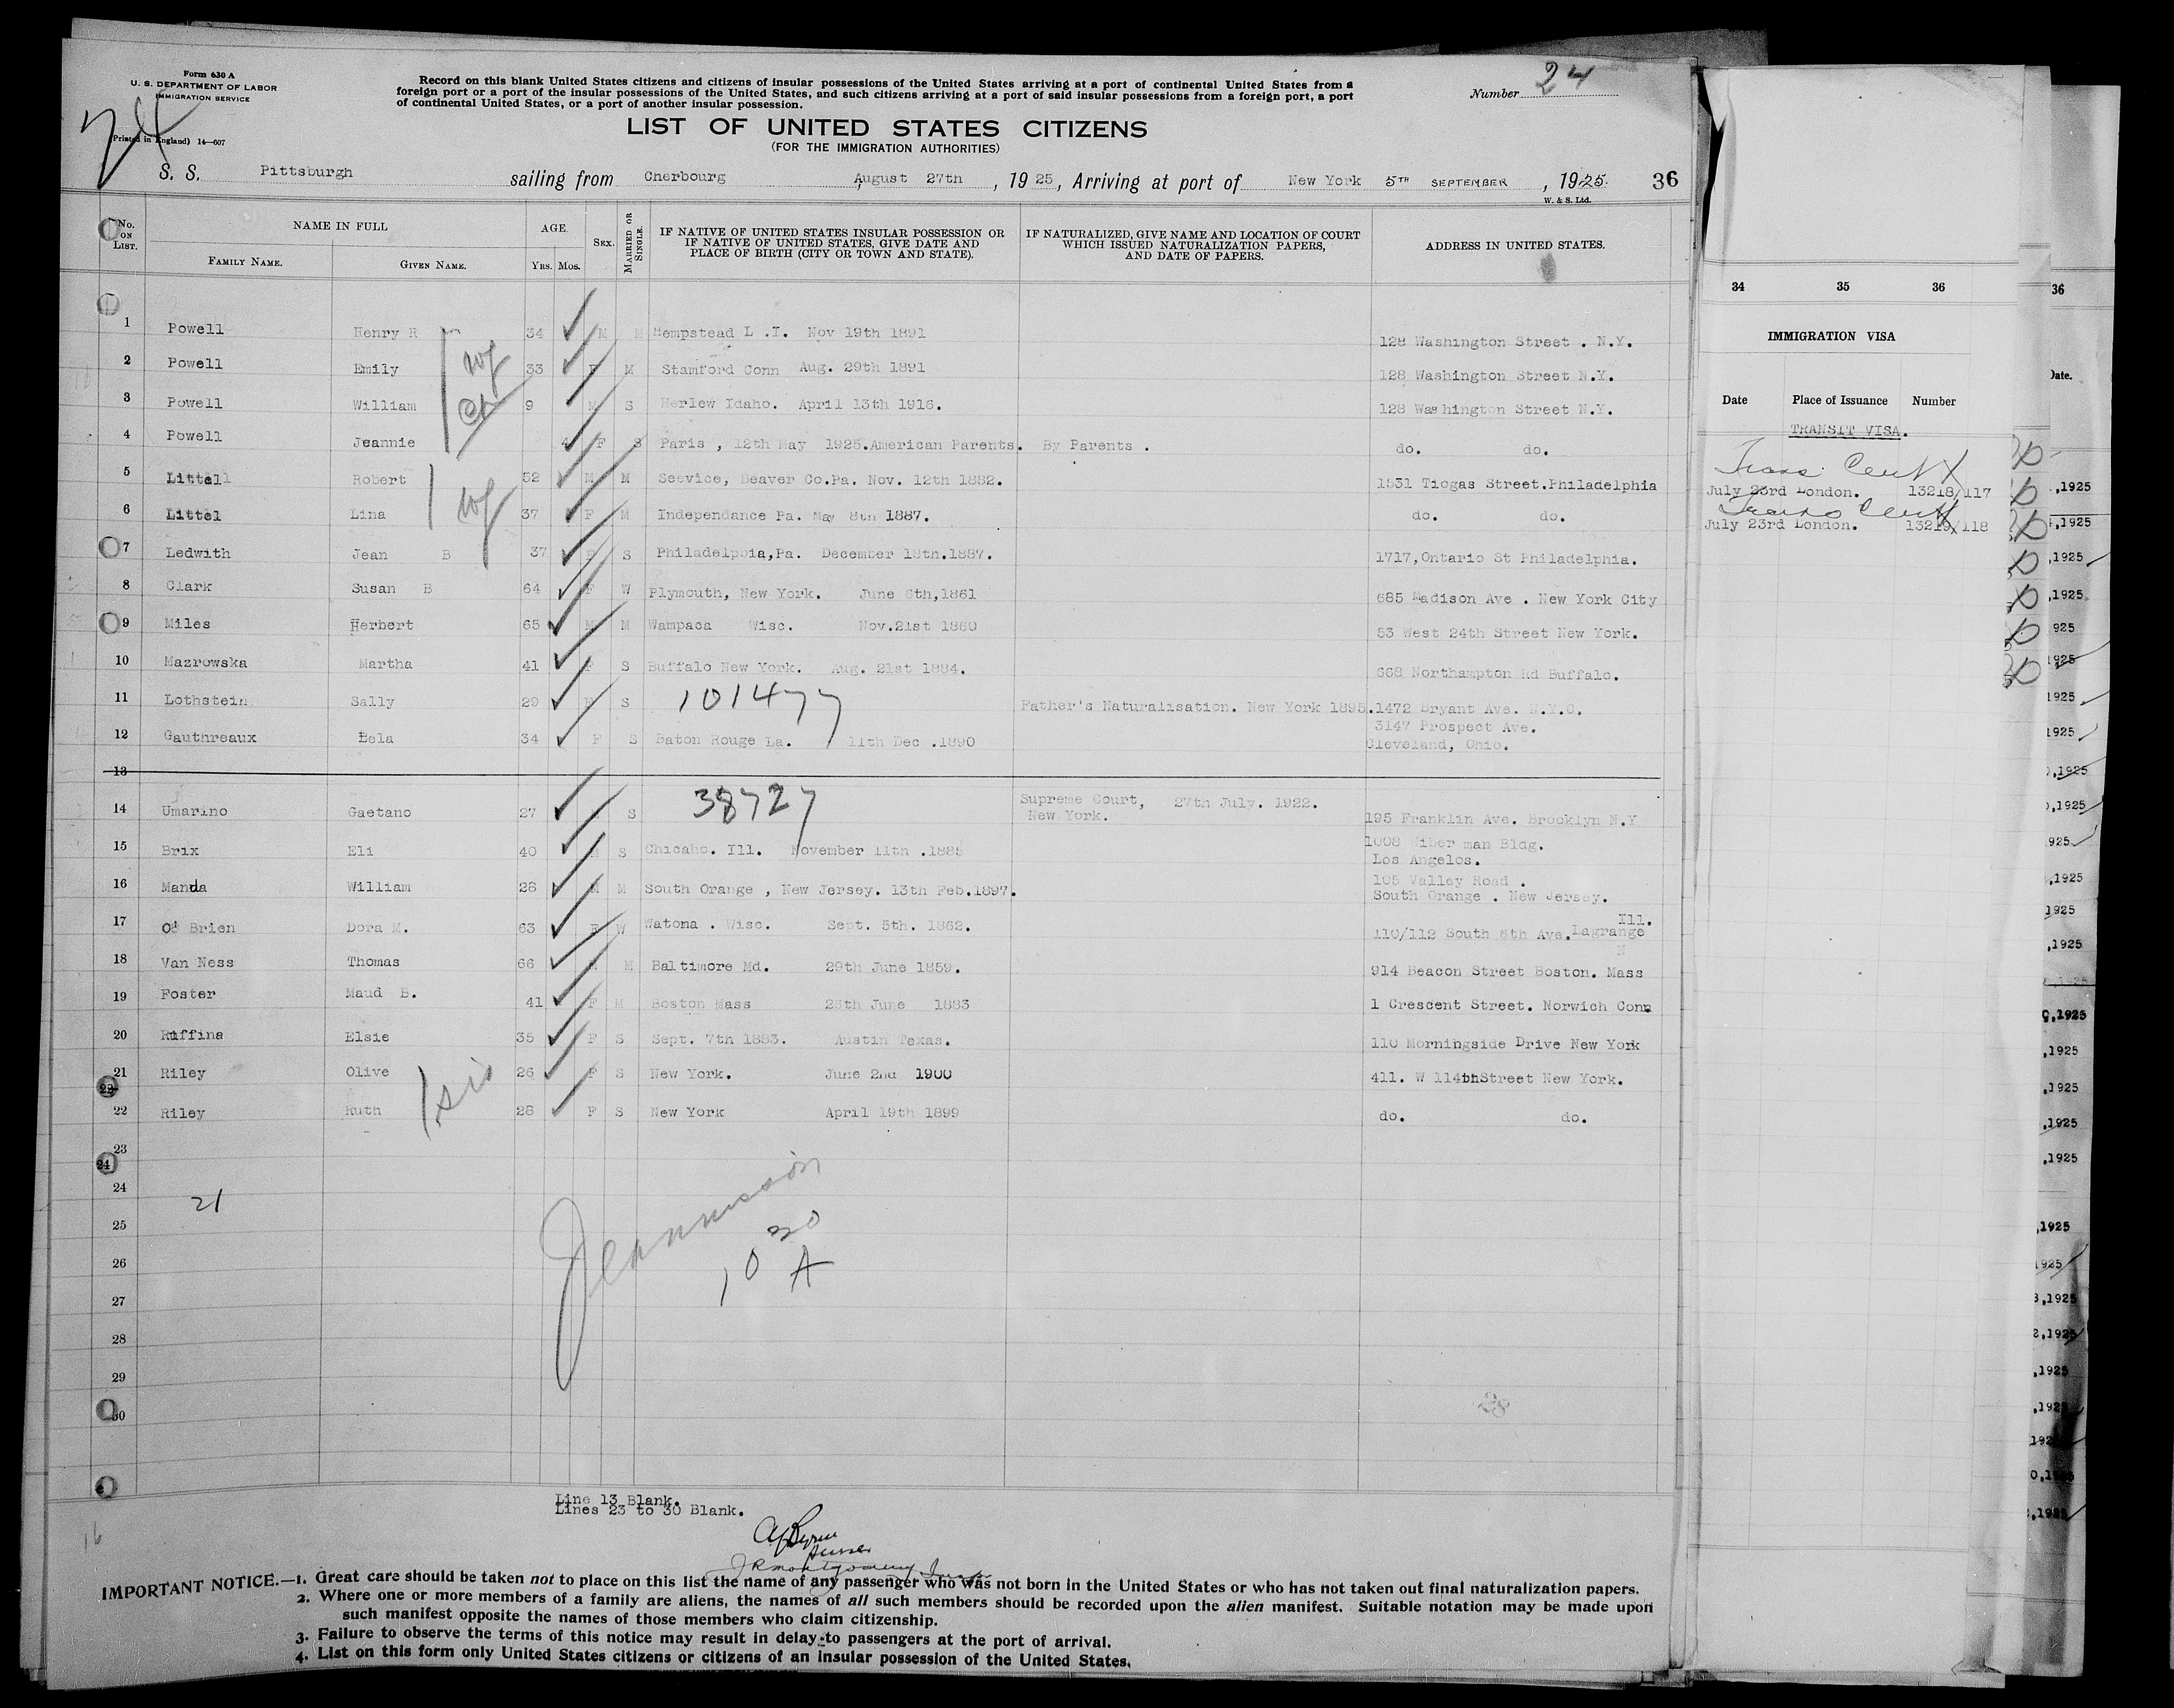 Form 630 A
U. S. DEPARTMENT OF LABOR
IMMIGRATION SERVICE
(Printed in England) 14—607
Record on this blank United States citizens and citizens of insular possessions of the United States arriving at a port of continental United States from a
foreign port or a port of the insular possessions of the United States, and such citizens arriving at a port of said insular possessions from a foreign port, a port
of continental United States, or a port of another insular possession.
Number 24
LIST OF UNITED STATES CITIZENS
(FOR THE IMMIGRATION AUTHORITIES)
S. S. Pittsburgh sailing from Cherbourg August 27th, 1925, Arriving at port of New York 5TH SEPTEMBER, 1925. 36
W. & S. Ltd.
No. ON LIST. NAME IN FULL FAMILY NAME. GIVEN NAME. AGE. YRS. MOS. SEX. MARRIED OR SINGLE. IF NATIVE OF UNITED STATES INSULAR POSSESSION OR IF NATIVE OF UNITED STATES, GIVE DATE AND PLACE OF BIRTH (CITY OR TOWN AND STATE). IF NATURALIZED, GIVE NAME AND LOCATION OF COURT WHICH ISSUED NATURALIZATION PAPERS, AND DATE OF PAPERS. ADDRESS IN UNITED STATES.
1 Powell Henry R 34 M M Hempstead L .I. Nov 19th 1891 128 Washington Street . N.Y.
2 Powell Emily wf 33 F M Stamford Conn Aug. 29th 1891 128 Washington Street N.Y.
3 Powell William ch 9 M S Herlew Idaho. April 13th 1916. 128 Washington Street N.Y.
4 Powell Jeannie 4 F S Paris , 12th May 1925.American Parents. By Parents . do. do.
5 Littell Robert 52 M M Seevice, Beaver Co.Pa. Nov. 12th 1882. 1531 Tiogas Street.Philadelphia
6 Littel Lina wf 37 F M Independance Pa. May 8th 1887. do. do.
7 Ledwith Jean B 37 F S Philadelphia,Pa. December 18th.1887. 1717,Ontario St Philadelphia.
8 Clark Susan B 64 F W Plymouth, New York. June 6th,1861 685 Madison Ave . New York City
9 Miles Herbert 65 M M Wampaca Wisc. Nov.21st 1860 53 West 24th Street New York.
10 Mazrowska Martha 41 F S Buffalo New York. Aug. 21st 1884. 668 Northampton Rd Buffalo.
11 Lothstein Sally 29 F S 101477 Father's Naturalisation. New York 1895. 1472 Bryant Ave. N.Y.C.
12 Gauthreaux Bela 34 F S Baton Rouge La. 11th Dec .1890 3147 Prospect Ave. Cleveland, Ohio.
13
14 Umarino Gaetano 27 S 38727 Supreme Court, 27th July. 1922. New York. 195 Franklin Ave. Brooklyn N.Y
15 Brix Eli 40 M S Chicaho. Ill. November 11th .1885 1008 Wiber man Bldg. Los Angelos.
16 Manda William 28 M M South Orange , New Jersey. 13th Feb.1897. 105 Valley Road . South Orange . New Jersey.
17 O' Brien Dora M. 63 F W Watona . Wisc. Sept. 5th. 1862. 110/112 South 6th Ave.Lagrange Ill.
18 Van Ness Thomas 66 M M Baltimore Md. 29th June 1859. 914 Beacon Street Boston. Mass
19 Foster Maud B. 41 F M Boston Mass 28th June 1883 1 Crescent Street. Norwich Conn
20 Ruffina Elsie 35 F S Sept. 7th 1883. Austin Texas. 110 Morningside Drive New York
21 Riley Olive 26 F S New York. June 2nd 1900 411. W 114thStreet New York.
22 Riley Ruth sis 28 F S New York April 19th 1899 do. do.
23
24
21
25
26
10 30 A
27
28
29
30
Line 13 Blank.
Lines 23 to 30 Blank.
IMPORTANT NOTICE.—1. Great care should be taken not to place on this list the name of any passenger who was not born in the United States or who has not taken out final naturalization papers.
2. Where one or more members of a family are aliens, the names of all such members should be recorded upon the alien manifest. Suitable notation may be made upon
such manifest opposite the names of those members who claim citizenship.
3. Failure to observe the terms of this notice may result in delay to passengers at the port of arrival.
4. List on this form only United States citizens or citizens of an insular possession of the United States.
34 35 36
IMMIGRATION VISA
Date Place of Issuance Number
TRANSIT VISA.
Trans Cert
July 23rd London. 13218/117
Trans Cert
July 23rd London. 13219/118
36
Date.